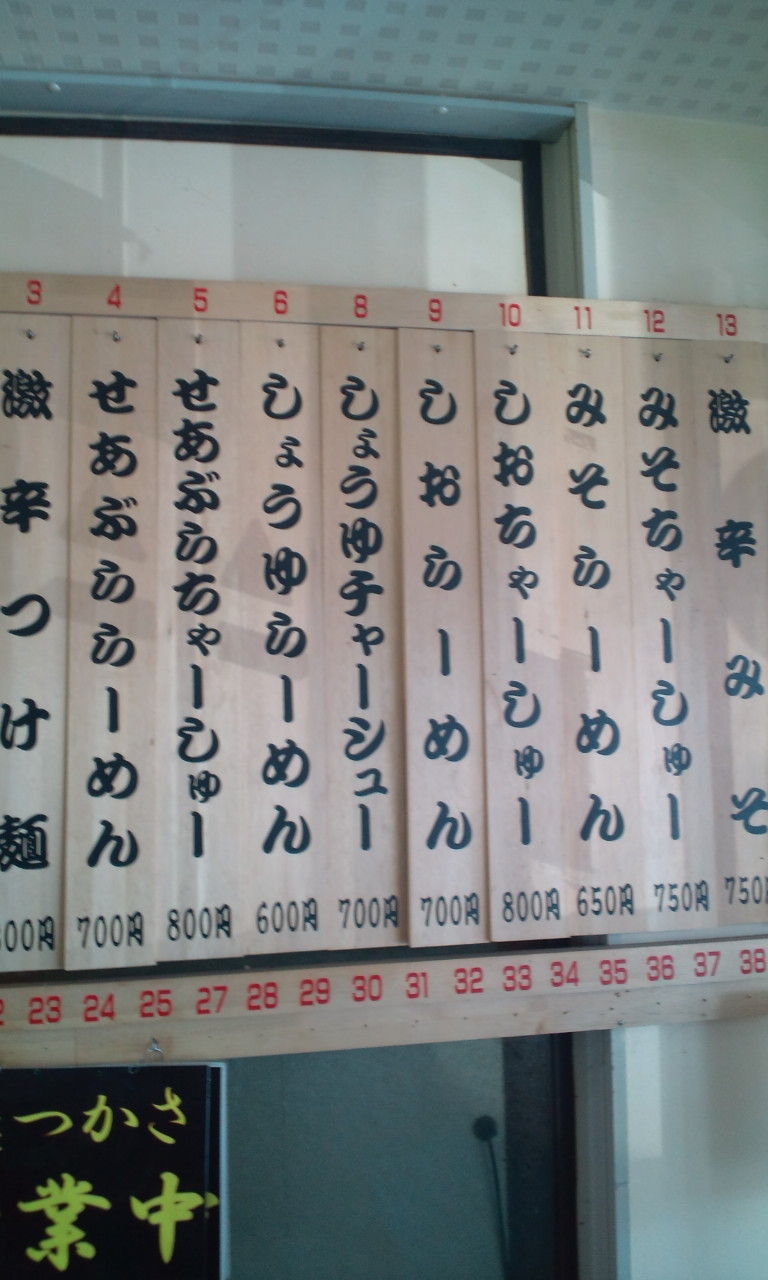 3 4 5 6 8 9 10 11 12 13
激辛つけ麺
00円
せあぶららーめん
700円
せあぶらちゃーしゅー
800円
しょうゆらーめん
600円
しょうゆチャーシュー
700円
しおらーめん
700円
しおちゃーしゅー
800円
みそらーめん
650円
みそちゃーしゅー
750円
激辛みそ
750
2 23 24 25 27 28 29 30 31 32 33 34 35 36 37 38
つかさ
業中